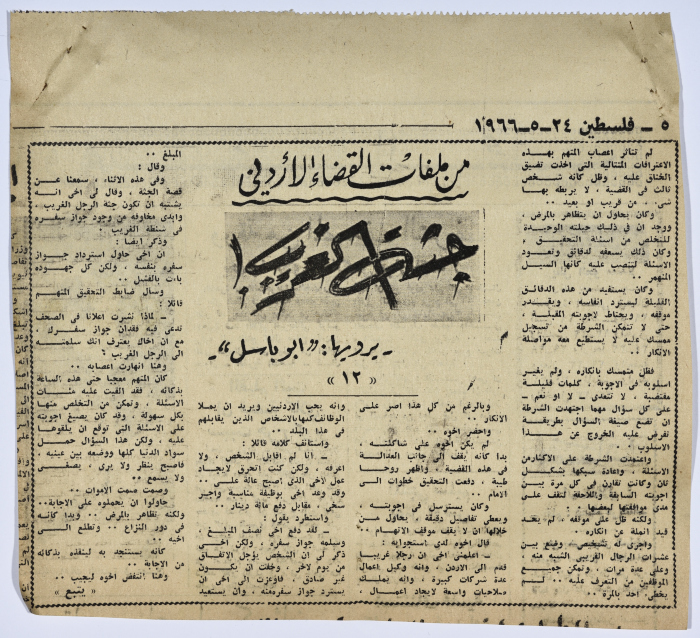 ٥ ـ فلسطين ٢٤-٥-١٩٦٦
من ملفات القضاء الأردني
جثة الغريب !
ـ يرويها : « ابو باسل » ـ
« ١٢ »
لم تتأثر اعصاب المتهم بهذه
الاعترافات المتتالية التي اخذت تضيق
الخناق عليه ، وظل كأنه شخص
ثالث في القضية ، لا يربطه بها
شيء ، من قريب او بعيد ..
وكان يحاول ان يتظاهر بالمرض ،
ووجد ان في ذلك حيلته الوحيدة
للتخلص من اسئلة التحقيق ،
وكان ذلك يسعفه لدقائق وتعود
الاسئلة لتنصب عليه كأنها السيل
المنهمر ..
وكان يستفيد من هذه الدقائق
القليلة ليسترد انفاسه ، ويقدر
موقفه ، ويحتاط لاجوبته المقبلة ،
حتى لا تتمكن الشرطة من تسجيل
ممسك عليه لا يستطيع معه مواصلة
الانكار ..
فظل متمسك بانكاره ، ولم يغير
اسلوبه في الاجوبة ، كلمات قليلة
مقتضبة ، لا تتعدى ــ لا او نعم ــ
على كل سؤال مهما اجتهدت الشرطة
ان تضع صيغة السؤال بطريقة
تفرض عليه الخروج عن هذا
الاسلوب .
واعتمدت الشرطة على الاكثار من
الاسئلة ، واعادة سبكها بشكل
ثان وكانت تقارن في كل مرة بين
اجوبته السابقة واللاحقة لتقف على
مدى موافقتها لبعضها ..
ولكنه ظل على موقفه ، لم يحد
قيد انملة عن انكاره ..
واجري له تشخيص ، وضع بين
عشرات الرجال القريبي الشبه منه ،
وعلى عدة مرات ، وتمكن جميع
الموظفين من التعرف عليه .. لم
يخطىء احد بالمرة ..
وبالرغم من كل هذا اصر على
الانكار ..
واحضر اخوه ..
لم يكن اخوه على شاكلته ،
بدا كأنه يقف الى جانب العدالة
في هذه القضية ، واظهر روحا
طيبة ، دفعت التحقيق خطوات الى
الامام ..
وكان يسترسل في اجوبته ،
ويعطي تفاصيل دقيقة ، يحاول من
خلالها ان لا يقف موقف الاتهام ..
قال اخوه لدى استجوابه :
ــ اعلمني اخي ان رجلا غريبا
قدم الى الاردن ، وانه وكيل اعمال
عدة شركات كبيرة ، وانه يملك
صلاحيات واسعة لايجاد اعمال ،
وانه يحب الاردنيين ويريد ان يملا
الوظائف كلها بالاشخاص الذين يقابلهم
في هذا البلد ..
واستأنف كلامه قائلا :
ــ انا لم اقابل الشخص ، ولا
اعرفه ، ولكن كنت اتحرق لايجاد
عمل لاخي الذي اصبح عالة علي ..
وقد وعد اخي بوظيفة مناسبة واجر
سخي ، مقابل دفع مائة دينار ..
واستطرد يقول :
ــ لقد دفع اخي نصف المبلغ ،
وسلمه جواز سفره ، ولكن اخي
ذكر لي ان الشخص يؤجل الاتفاق
من يوم لاخر ، وخفت ان يكون
غير صادق ، فاوعزت الى اخي ان
يسترد جواز سفره منه ، وان يستعيد
المبلغ ..
وقال :
وفي هذه الاثناء ، سمعنا عن
قصة الجثة ، وقال لي اخي انه
يشتبه ان تكون جثة الرجل الغريب ،
وابدى مخاوفه من وجود جواز سفره
في شنطة الغريب .
وذكر ايضا :
ان اخي حاول استرداد جواز
سفره بنفسه ، ولكن كل جهوده
باءت بالفشل ..
وسأل ضابط التحقيق المتهم
قائلا :
ــ لماذا نشرت اعلانا في الصحف
تدعي فيه فقدان جواز سفرك ،
مع ان اخاك يعترف انك سلمته
الى الرجل الغريب ؟
وهنا انهارت اعصابه ..
كان المتهم معجبا حتى هذه الساعة
بذكائه ، فقد القيت عليه مئات
الاسئلة ، وتمكن من التخلص منها
بكل سهولة ، وقد كان يصيغ اجوبته
على الاسئلة التي توقع ان يلقوها
عليه ، ولكن هذا السؤال حمل
سواد الدنيا كلها ووضعه بين عينيه
فاصبح ينظر ولا يرى ، يصغي
ولا يسمع ..
وصمت صمت الاموات ..
حاولوا ان يحملوه على الاجابة ..
ولكنه تظاهر بالمرض .. وبدا كأنه
في دور النزاع .. وتطلع الى
اخيه ..
كأنه يستنجد به لينقذه بذكائه
من الاجابة ..
وهنا انتفض اخوه ليجيب ..
« يتبع »